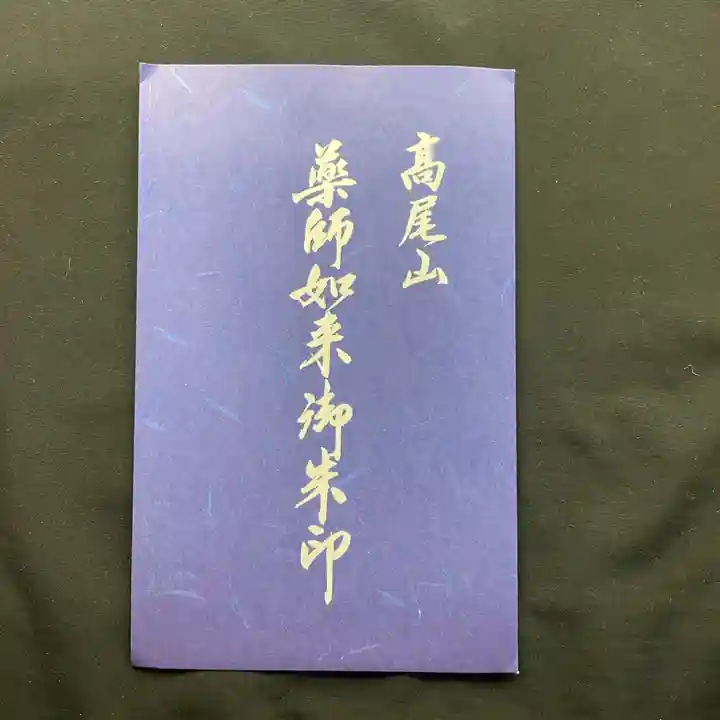 高尾山
薬師如来御朱印